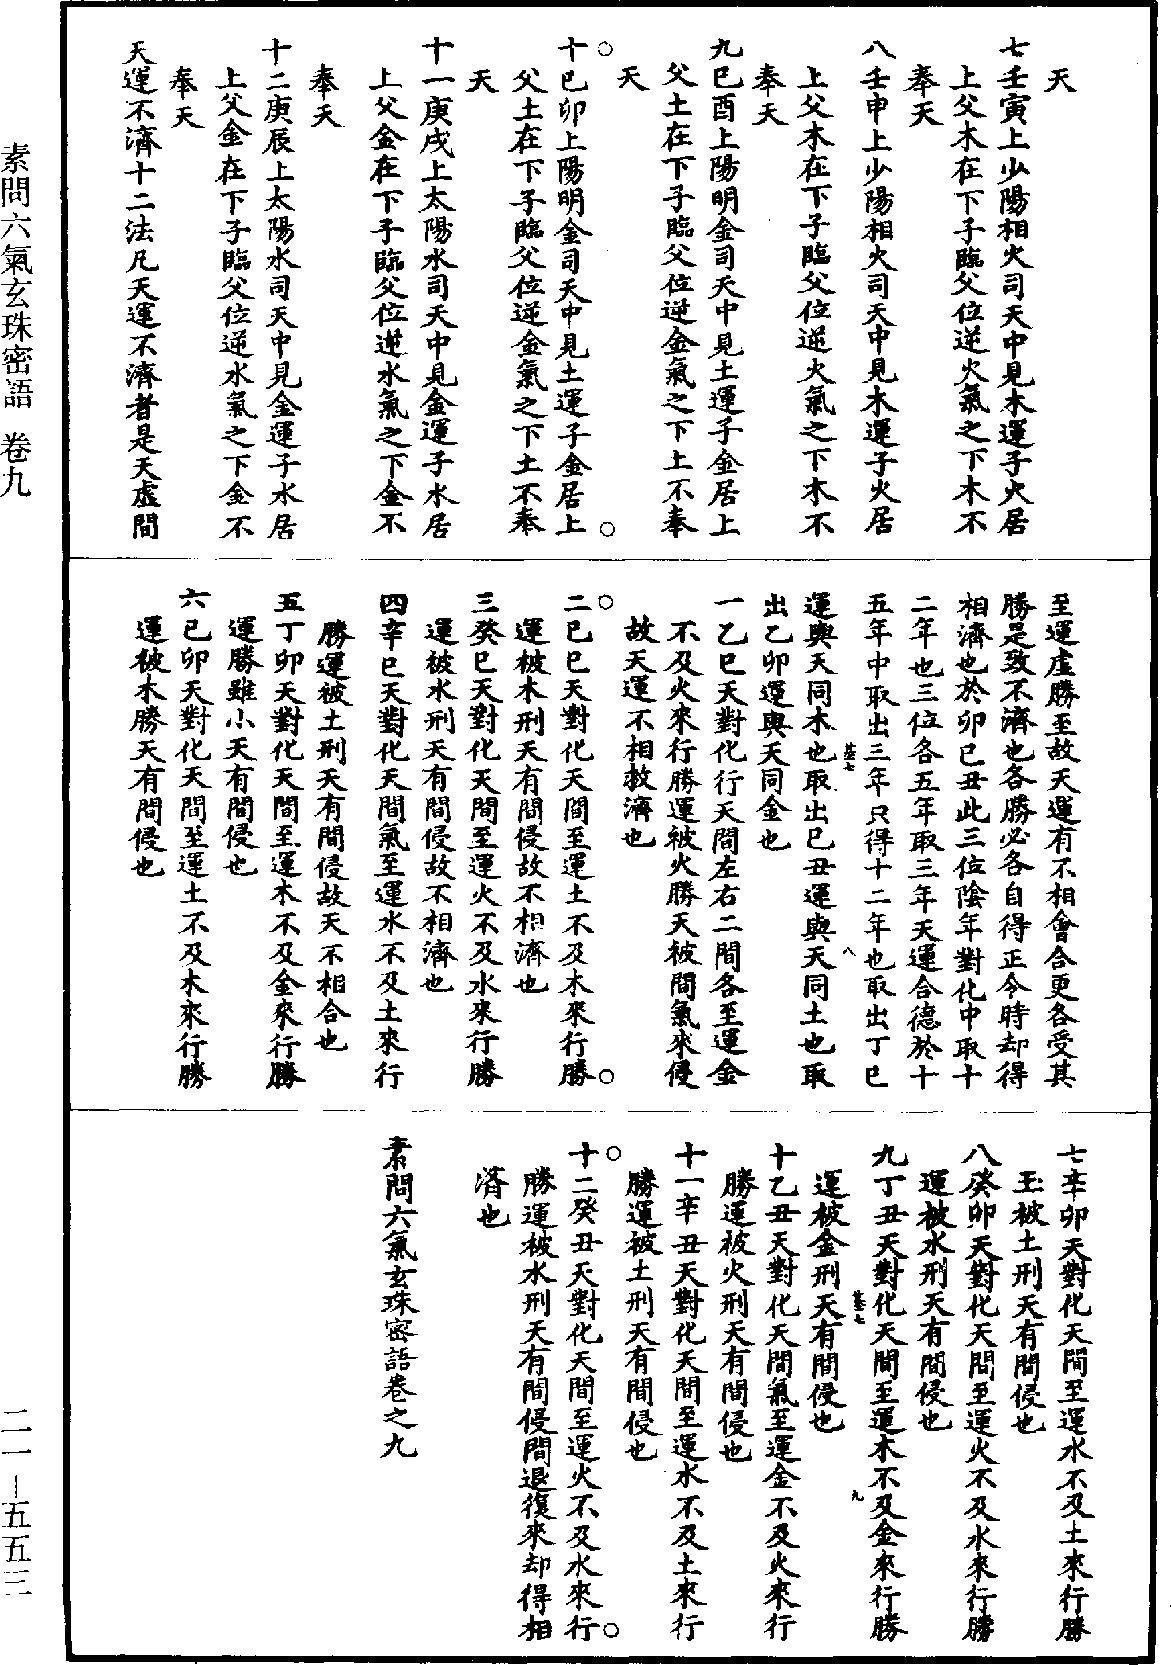 天
七壬寅上少陽相火司天中見木運子火居
上父木在下子臨父位逆火氣之下木不
奉天
八壬申上少陽相火司天中見木運子火居
上父木在下子臨父位逆火氣之下木不
奉天
九巳酉上陽明金司天中見土運子金居上
父土在下子臨父位逆金氣之下上不奉
天
十巳卯上陽明金司天中見土運子金居上
父土在下子臨父位逆金氣之下土不奉
天
十一庚戌上太陽水司天中見金運子水居
上父金在下子臨父位逆水氣之下金不
奉天
十二庚辰上太陽水司天中見金運子水居
上父金在下子臨父位逆水氣之下金不
奉天
天運不濟十二法凡天運不濟者是天虛間
至運虛勝至故天運有不相會合更各受其
勝是致不濟也各勝必各自得正令時却得
相濟也於卯巳丑此三位陰年對化中取十
二年也三位各五年取三年天運合德於十
五年中取出三年只得十二年也取出丁巳
基七
八
運與天同木也取出巳丑運與天同土也取
出乙卯運與天同金也
一乙巳天對化行天間左右二間各至運金
不及火來行勝運被火勝天被間氣來侵
故天運不相救濟也
二巳巳天對化天間至運土不及木來行勝
運被木刑天有間侵故不相濟也
三癸巳天對化天間至運火不及水來行勝
運被水刑天有間侵故不相濟也
四辛巳天對化天間氣至運水不及土來行
勝運被土刑天有間侵故天不相合也
五丁卯天對化天間至運木不及金來行勝
運勝雖小天有間侵也
六巳卯天對化天間至運土不及木來行勝
運被木勝天有間侵也
七辛卯天對化天間至運水不及土來行勝
玉被土刑天有間侵也
八癸卯天對化天間至運火不及水來行勝
運被水刑天有間侵也
九丁丑天對化天間至運木不及金來行勝
基七
九
運被金刑天有間侵也
十乙丑天對化天間氣至運金不及火來行
勝運被火刑天有間侵也
十一辛丑天對化天間至運水不及土來行
勝運被土刑天有間侵也
十二癸丑天對化天間至運火不及水來行
勝運被水刑天有間侵間退復來却得相
濟也
素問六氣玄珠密語卷之九
素問六氣玄珠密語 卷九
二一—五五三